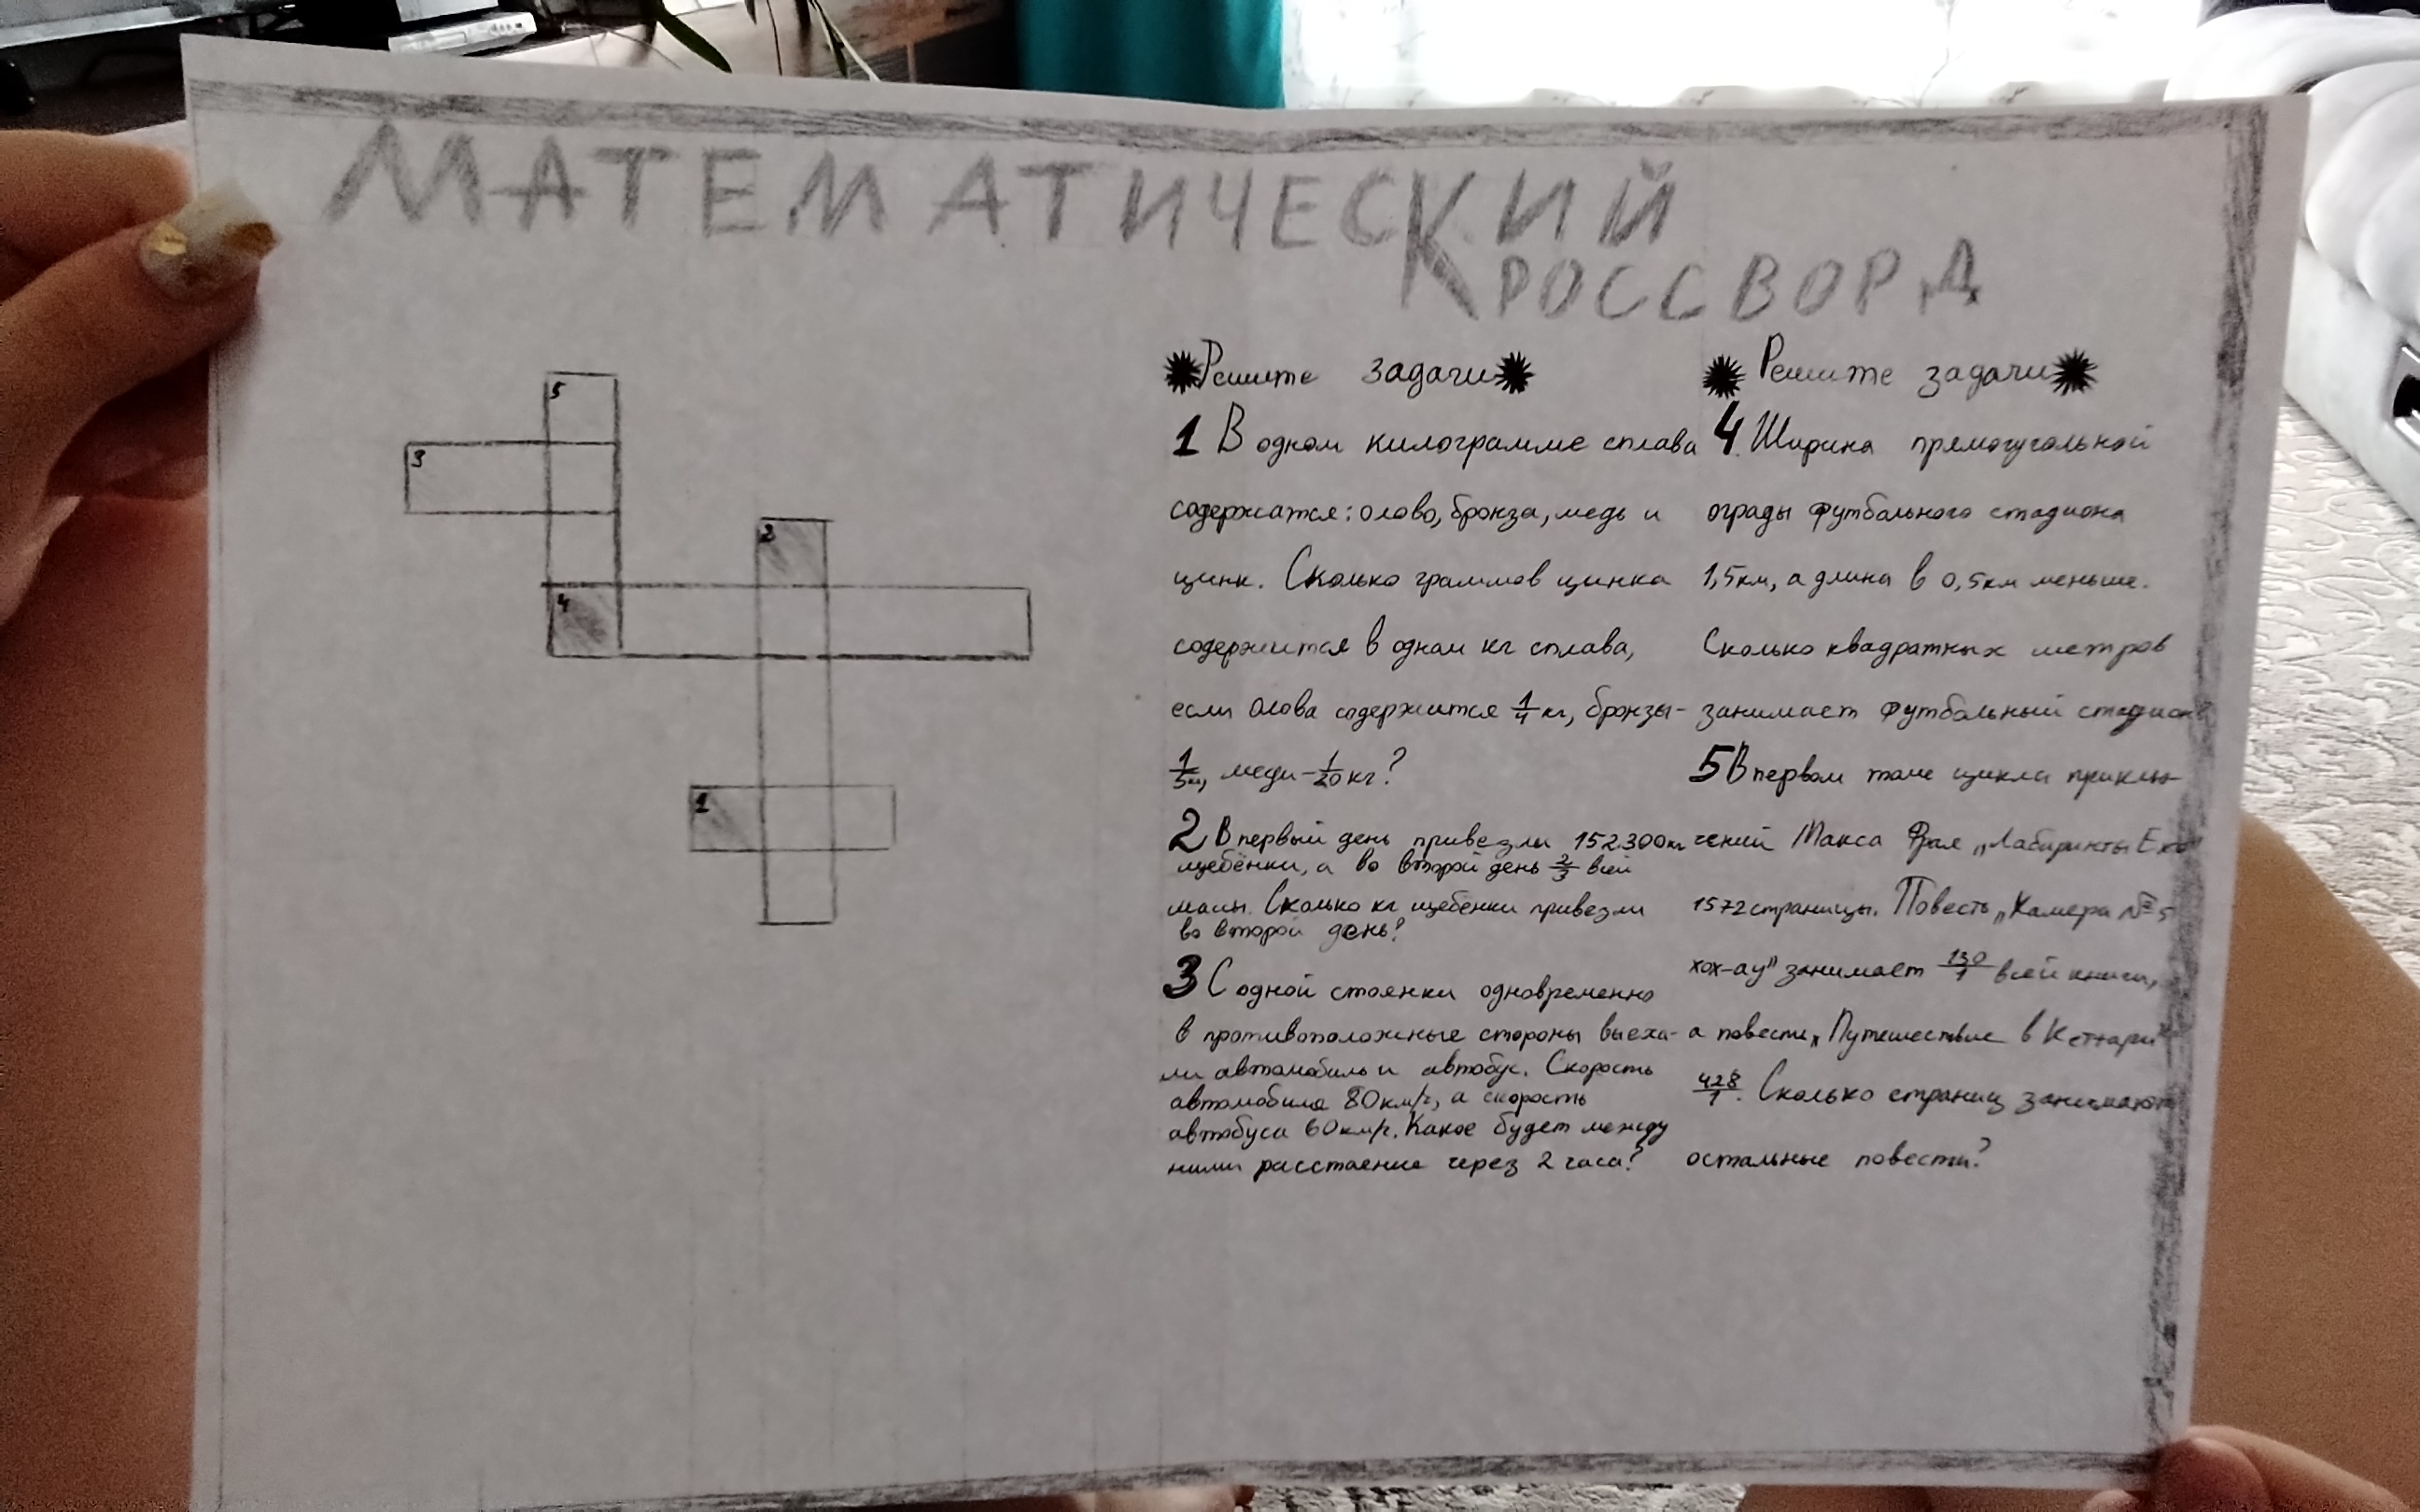 МАТЕМАТИЧЕСКИЙ
КРОССВОРД
5
3
2
4
1
Решите задачи
1 В одном килограмме сплава
содержатся: олово, бронза, медь и
цинк. Сколько граммов цинка
содержится в одном кг сплава,
если олова содержится 1/4 кг, бронзы-
1/5 кг, меди - 1/20 кг?
2 В первый день привезли 152.300 кг
щебёнки, а во второй день 2/3 всей
массы. Сколько кг щебёнки привезли
во второй день?
3 С одной стоянки одновременно
в противоположные стороны выеха-
ли автомобиль и автобус. Скорость
автомобиля 80 км/ч, а скорость
автобуса 60 км/ч. Какое будет между
ними расстояние через 2 часа?
Решите задачи
4. Ширина прямоугольной
ограды футбольного стадиона
1,5 км, а длина в 0,5 км меньше.
Сколько квадратных метров
занимает футбольный стадион
5 В первом томе цикла приклю-
чений Макса Фрая „Лабиринты Ехо"
1572 страницы. Повесть „Камера № 5
хох-ау" занимает 130/1 всей книги,
а повести „Путешествие в Кеттари"
428/1. Сколько страниц занимают
остальные повести?